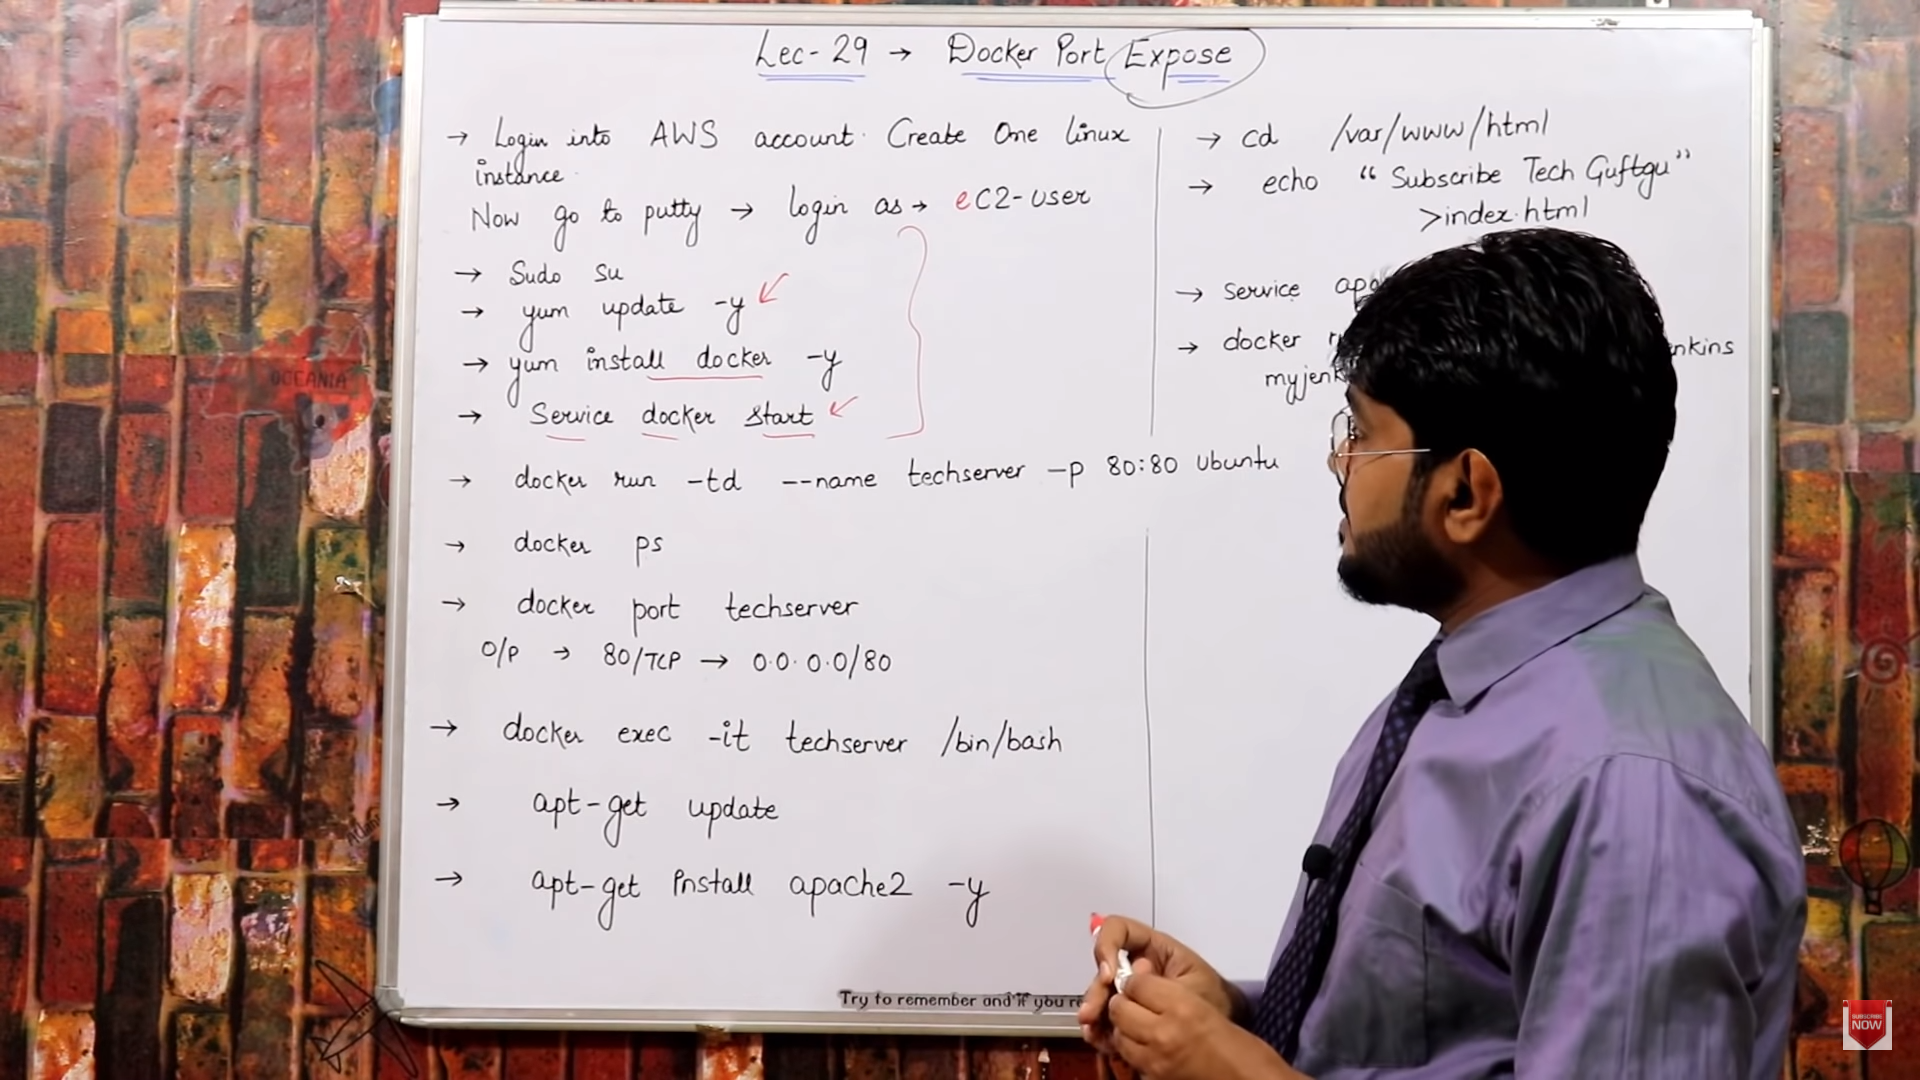 Lec-29 → Docker Port Expose
→ Login into AWS account. Create One linux
instance.
Now go to putty → login as → eC2-user
→ Sudo su
→ yum update -y
→ yum install docker -y
→ Service docker start
→ docker run -td --name techserver -p 80:80 ubuntu
→ docker ps
→ docker port techserver
O/P → 80/TCP → 0.0.0.0/80
→ docker exec -it techserver /bin/bash
→ apt-get update
→ apt-get install apache2 -y
→ cd /var/www/html
→ echo “Subscribe Tech Guftgu”
>index.html
→ service
→ docker
Try to remember and if you
OCEANIA
SUBSCRIBE
NOW